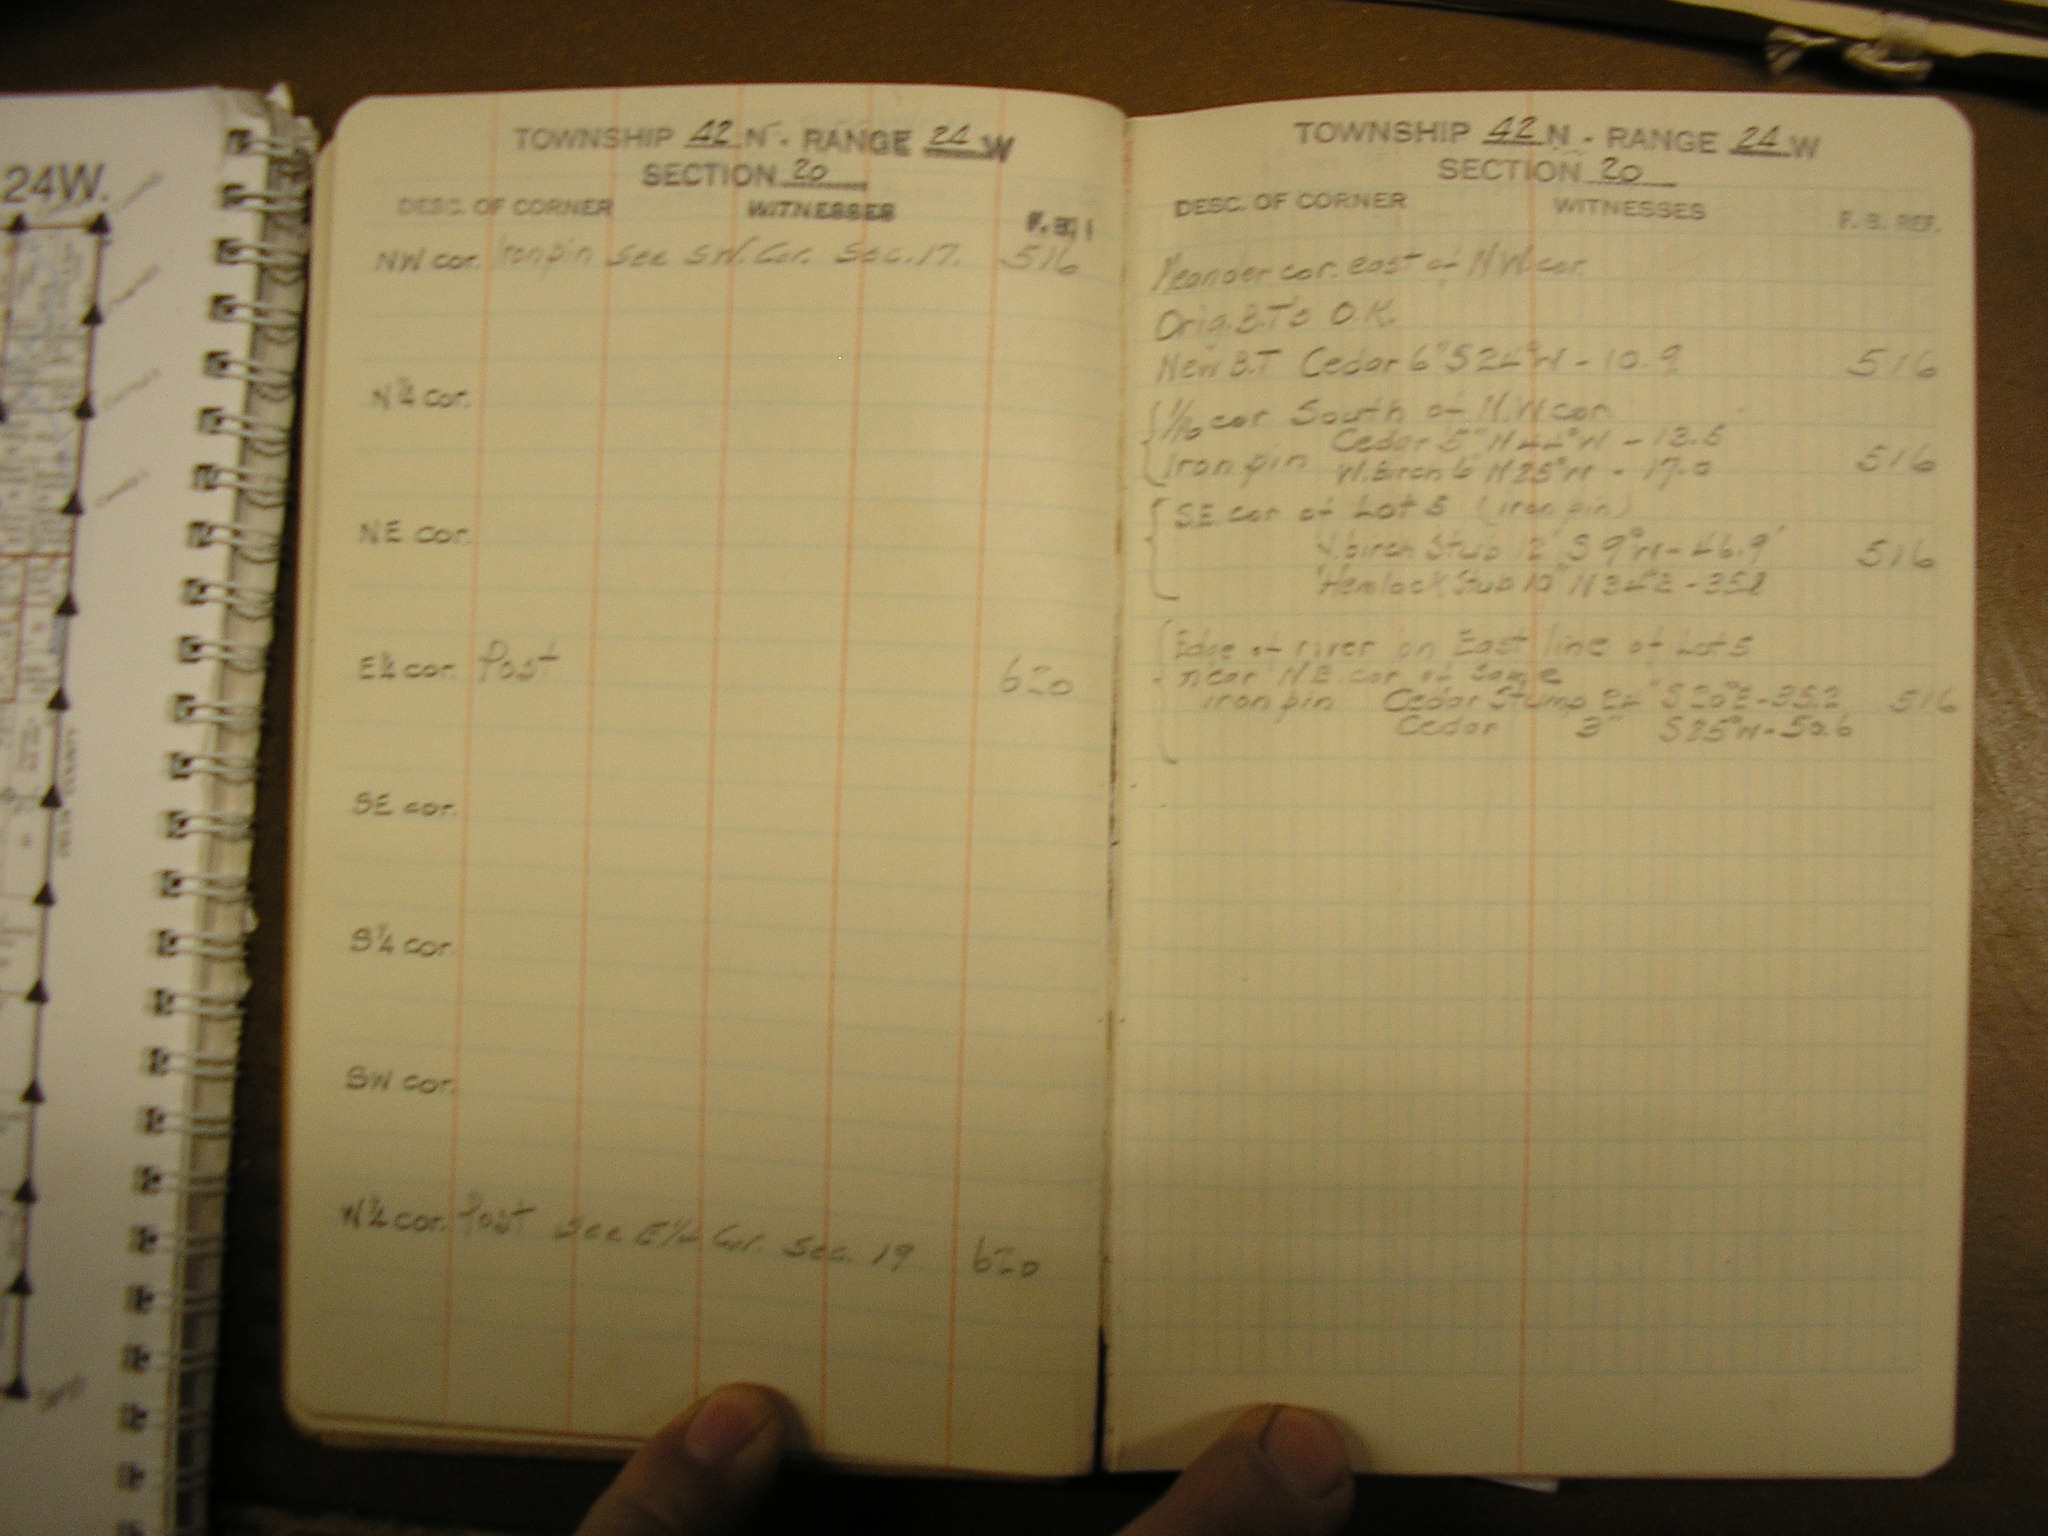 24W.
TOWNSHIP 42 N - RANGE 24 W
SECTION 20
DESC. OF CORNER WITNESSES F. B.
NW cor. Iron pin See SW. Cor. Sec. 17. 516
N¼ cor.
NE cor.
E¼ cor. Post 620
SE cor.
S¼ cor.
SW cor.
W¼ cor. Post See E¼ Cor. Sec. 19 620
TOWNSHIP 42 N - RANGE 24 W
SECTION 20
DESC. OF CORNER WITNESSES F. B. REF.
Meander cor. east of N.W. cor.
Orig. B.T's O.K.
New B.T Cedar 6" S 24° W - 10.9 516
1/16 cor South of N.W. cor
Cedar 5" N 44° W - 13.5
Iron pin W. birch 6" N 25° W - 17.0 516
SE cor of Lot 5 (iron pin)
Y. birch Stub 12" S 9° W - 46.9' 516
Hemlock Stub 10" N 34° E - 35.2
Edge of river on East line of Lot 5
near N.E. cor of same
iron pin Cedar Stump 24" S 20° E - 35.2 516
Cedar 3" S 35° W - 50.6